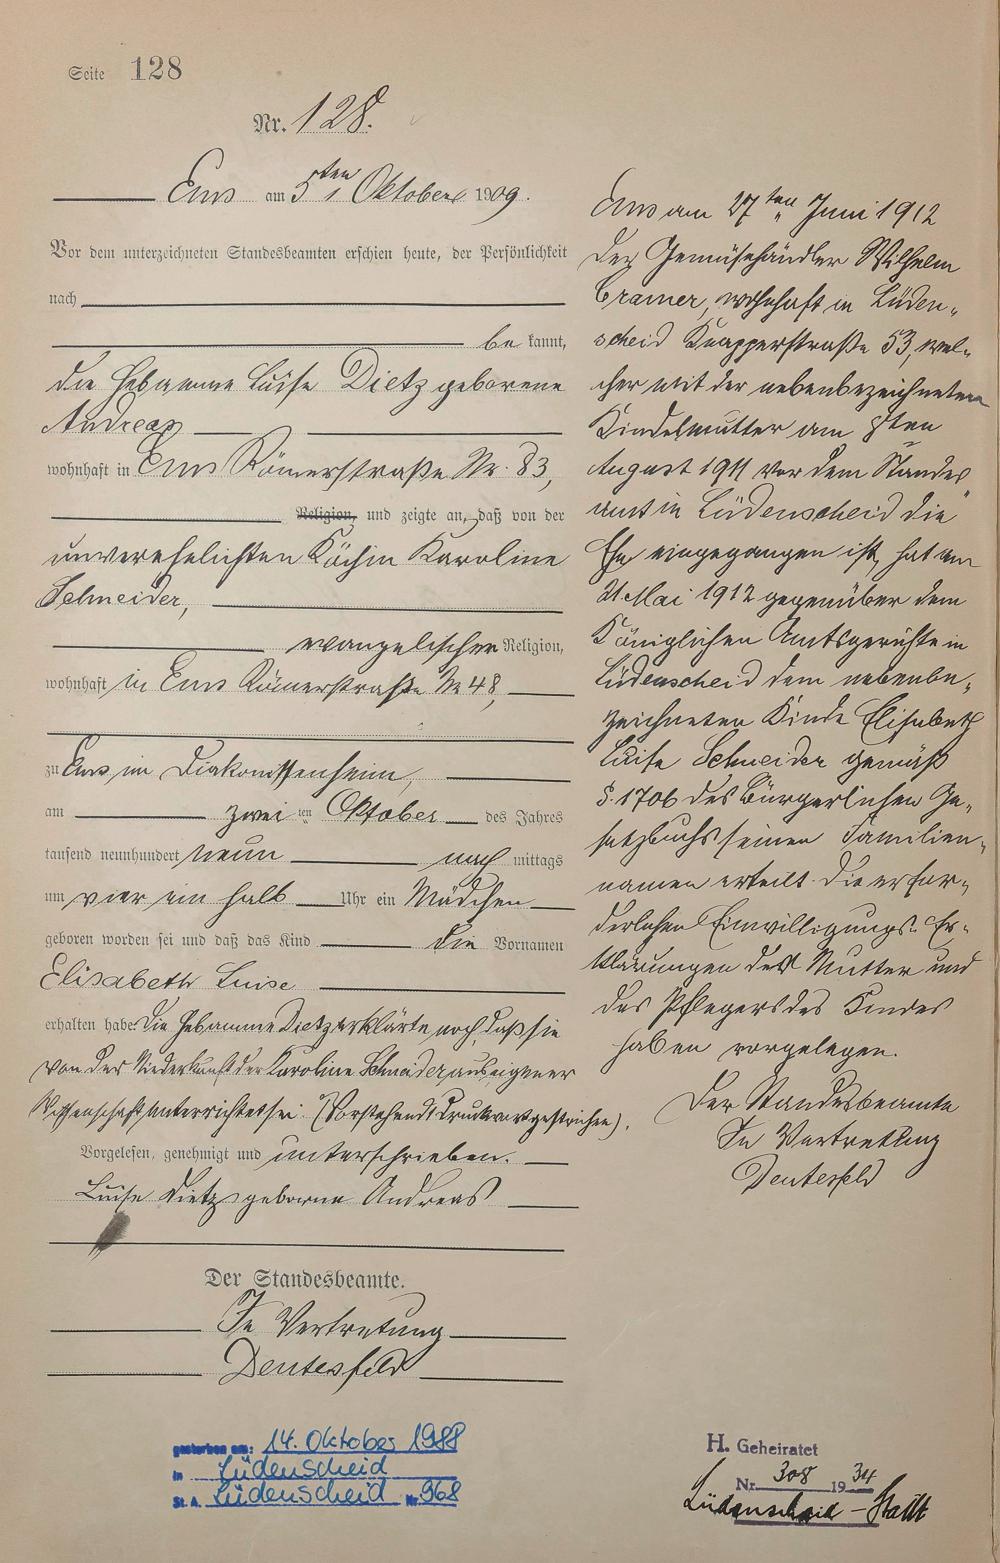 Seite 128
Nr. 128.
Ems am 5ten Oktober 1909.
Vor dem unterzeichneten Standesbeamten erschien heute, der Persönlichkeit
nach
be kannt,
die Hebamme Luise Dietz geborene
Andreas
wohnhaft in Ems Römerstraße Nr. 83,
Religion, und zeigte an, daß von der
unverehelichten Köchin Karoline
Schneider,
evangelischer Religion,
wohnhaft in Ems Römerstraße Nr 48,
zu Ems im Diakonissenheim,
am zwei ten Oktober des Jahres
tausend neunhundert neun nach mittags
um vier ein halb Uhr ein Mädchen
geboren worden sei und daß das Kind die Vornamen
Elisabeth Luise
erhalten habe. Die Hebamme Dietz erklärte noch, daß sie
von der Niederkunft der Karoline Schneider aus eigener
Wissenschaft unterrichtet sei. (Vorstehend 1 Druckwort gestrichen).
Vorgelesen, genehmigt und unterschrieben.
Luise Dietz geborene Andreas
Der Standesbeamte.
In Vertretung
Deutesfeld
gestorben am: 14. Oktober 1988
in Lüdenscheid
St. A. Lüdenscheid Nr. 968
Ems am 27ten Juni 1912
Der Gemüsehändler Wilhelm
Cramer, wohnhaft in Lüden-
scheid Knapperstraße 53, wel-
cher mit der nebenbezeichneten
Kindesmutter am 8ten
August 1911 vor dem Standes
amt in Lüdenscheid die
Ehe eingegangen ist, hat am
21. Mai 1912 gegenüber dem
Königlichen Amtsgerichte in
Lüdenscheid dem nebenbe-
zeichneten Kinde Elisabeth
Luise Schneider gemäß
§. 1706 des Bürgerlichen Ge-
setzbuchs seinen Familien-
namen erteilt. Die erfor-
derlichen Einwilligungs-Er-
klärungen der Mutter und
des Pflegers des Kindes
haben vorgelegen.
Der Standesbeamte
In Vertretung
Deutesfeld
H. Geheiratet
Nr. 308 1934
Lüdenscheid-Stadt